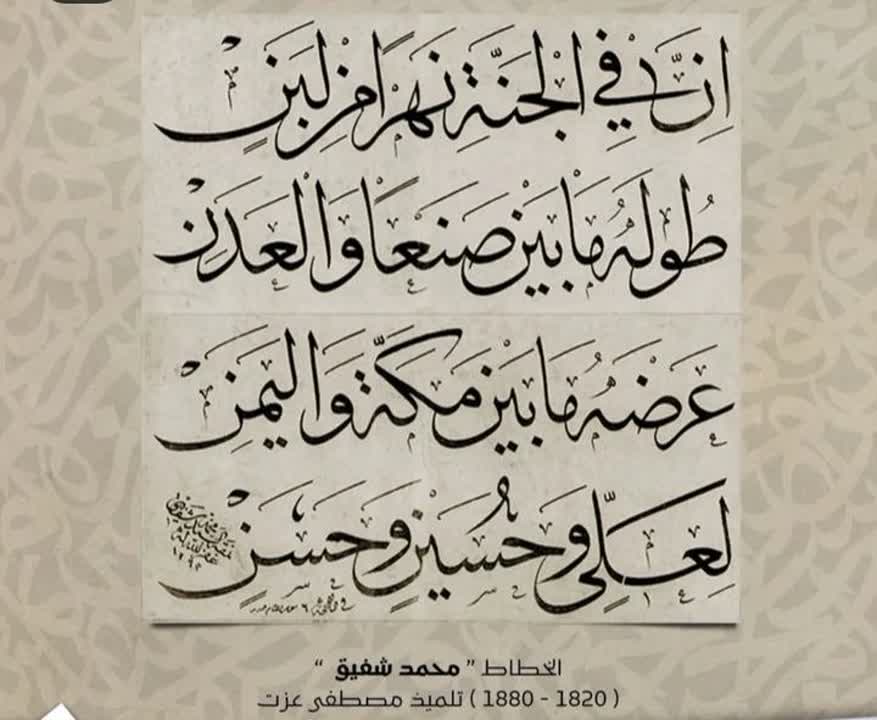 اِنَّ فِي الْجَنَّةِ نَهْرًا مِنْ لَبَنٍ
طُولُهُ مَا بَيْنَ صَنْعًا وَالْعَدَنِ
عَرْضُهُ مَا بَيْنَ مَكَّةَ وَالْيَمَنِ
لِعَلِيٍّ وَحُسَيْنٍ وَحَسَنٍ
الخطاط " محمد شفيق "
( 1820 - 1880 ) تلميذ مصطفى عزت